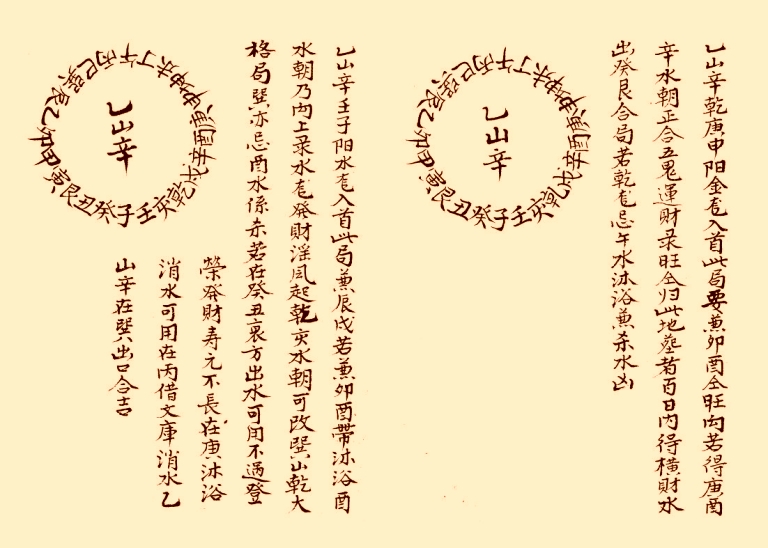 乙山辛乾庚申阳金龙入首此局要兼卯酉仝旺向若得庚酉
辛水朝正合五鬼運財录旺仝归此地葬者百日内得横財水
出癸艮合局若乾龙忌午水沐浴兼杀水凶
乙山辛
午丁未坤申庚酉辛戌乾亥壬子癸丑艮寅甲卯乙辰巽巳丙
乙山辛壬子阳水龙入首此局兼辰戌若兼卯酉帶沐浴酉
水朝乃丙上录水龙發財淫风起乾亥水朝可改巽山乾大
格局巽亦忌酉水係杀若在癸丑衰方出水可用不過登
榮發財寿元不長在庚沐浴
消水可用在丙借文庫消水乙
山辛在巽出口合吉
乙山辛
午丁未坤申庚酉辛戌乾亥壬子癸丑艮寅甲卯乙辰巽巳丙